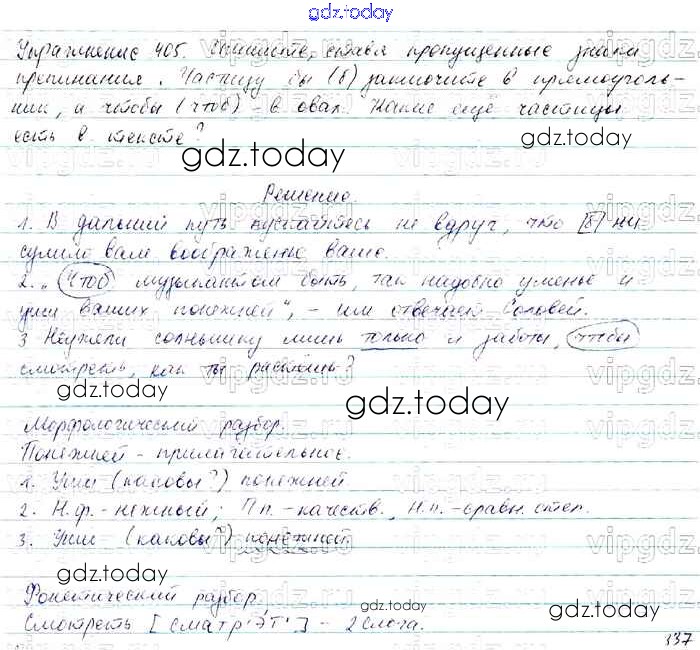 gdz.today
Упражнение 405. Спишите, ставя пропущенные знаки
препинания. Частицу бы (б) заключите в прямоуголь-
ник, а чтобы (чтоб) - в овал. Какие ещё частицы
есть в тексте?
gdz.today
gdz.today
Решение
1. В дальний путь пускайтесь не вдруг, что [б] ни
сулило вам воображенье ваше.
2. „Чтоб музыкантом быть, так надобно уменье и
уши ваших понежней“, - им отвечает Соловей.
3 Неужели солнышку лишь только и заботы, чтобы
смотреть, как ты растёшь?
gdz.today
Морфологический разбор.
Понежней - прилагательное.
1. Уши (каковы?) понежней
2. Н.ф. - нежный; Пп. - качеств., Н.п. - сравн. степ.
3. Уши (каковы?) понежней.
gdz.today
Фонетический разбор
gdz.today
gdz.today
Смотреть [сматр'эт'] - 2 слога.
337